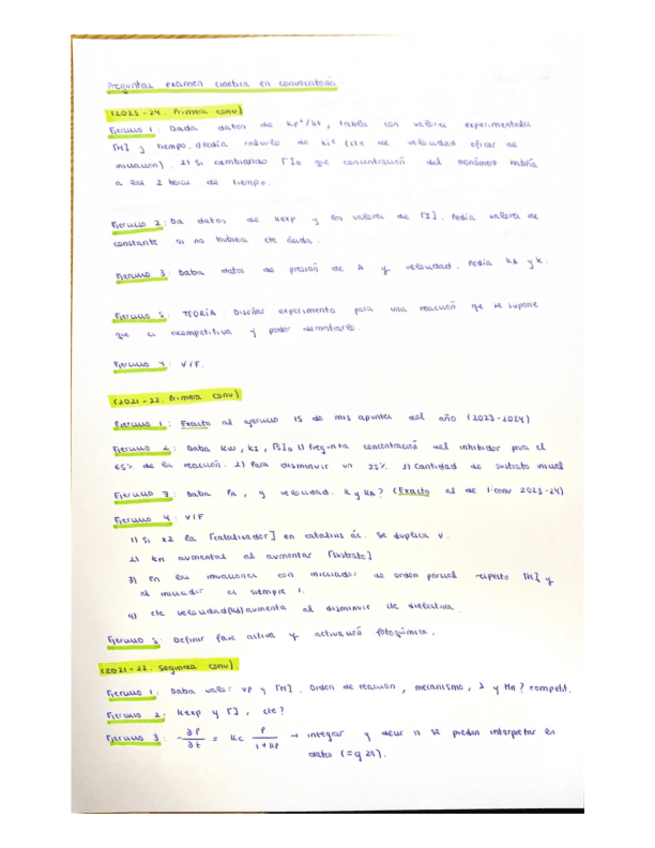 Preguntas examen cinética en convocatoria
(2023-24. Primera conv)
Ejercicio 1: Daba datos de kp²/kt, tabla con valores experimentales
[M] y tiempo. 1) Pedía cálculo de (cte de velocidad eficaz de
iniciación). 2) Si cambiando [I]o que concentración del monómero habría
a las 2 horas de tiempo.
Ejercicio 2: Da datos de kexp y los valores de [I]. Pedía valores de
constante si no hubiera cte ácida.
Ejercicio 3: Daba datos de presión de A y velocidad. Pedía kA y k.
Ejercicio 5: TEORÍA: Diseñar experimento para una reacción que se supone
que es acompetitiva y poder demostrarlo.
Ejercicio 4: V/F.
(2021-22. Primera conv)
Ejercicio 1: Exacto al ejercicio 15 de mis apuntes del año (2023-2024)
Ejercicio 2: Daba kM, kI, [S]o 1) Pregunta concentración del inhibidor para el
65% de la reacción. 2) Para disminuir un 25% 3) Cantidad de sustrato inicial
Ejercicio 3: Daba PA, y velocidad. k y KA? (Exacto al de 1ºconv 2023-24)
Ejercicio 4: V/F
1) Si x2 la [catalizador] en catálisis ác. se duplica v.
2) kM aumenta al aumentar [sustrato]
3) En las con iniciador de orden parcial respecto [M] y
al iniciador es siempre 1.
4) cte velocidad (k) aumenta al disminuir cte dieléctrica.
Ejercicio 5: Definir fase activa y activación fotoquímica.
(2021-22. Segunda conv).
Ejercicio 1: Daba valor vp y [M]. Orden de reacción, mecanismo, λ y Mn? competit.
Ejercicio 2: kexp y [], cte?
Ejercicio 3: -∂P/∂t = kc P/1+kP → integrar y decir si se pueden interpretar en
datos (=ej 29).